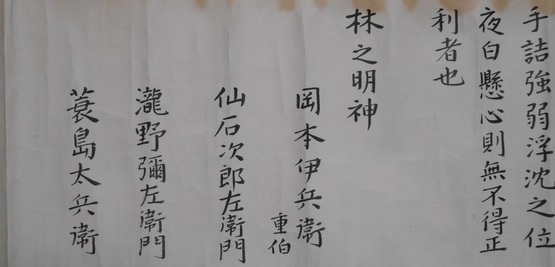 手詰強弱浮沈之位
夜白懸心則無不得正
利者也
林之明神
岡本伊兵衛
重伯
仙石次郎左衛門
瀧野彌左衛門
蓑島太兵衛